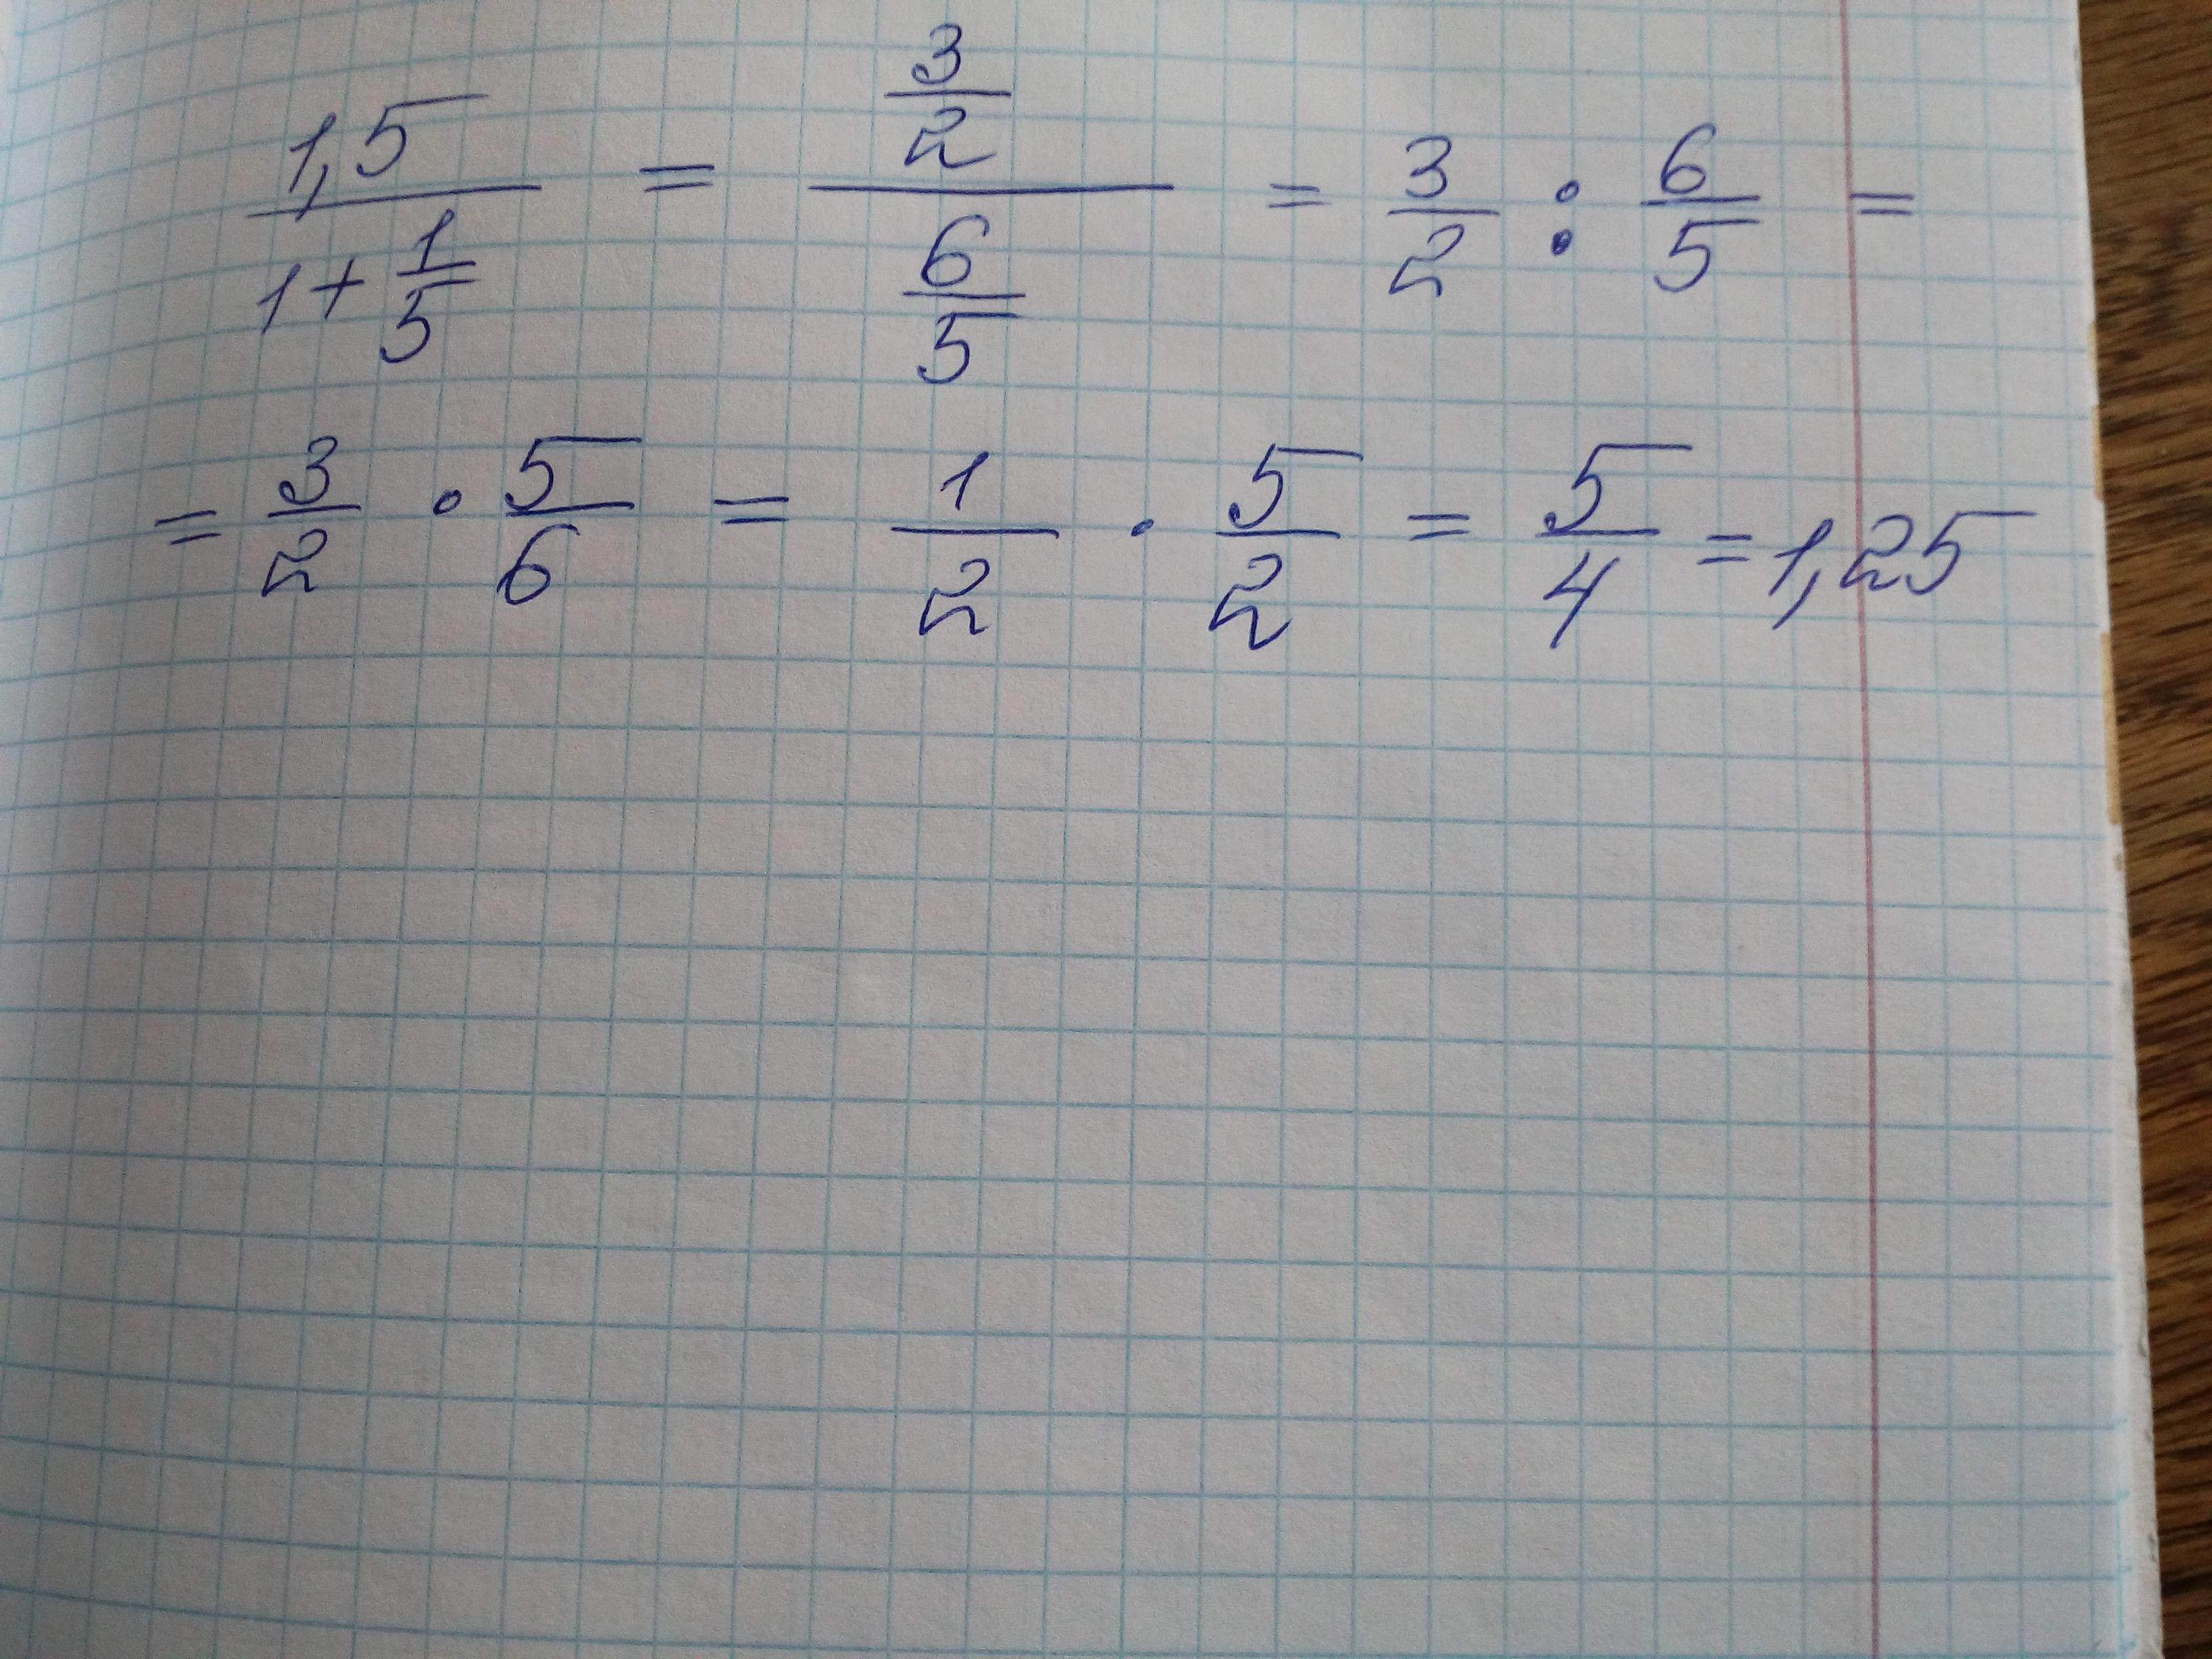 1,5/(1+1/5) = (3/2)/(6/5) = 3/2 : 6/5 =
= 3/2 · 5/6 = 1/2 · 5/2 = 5/4 = 1,25